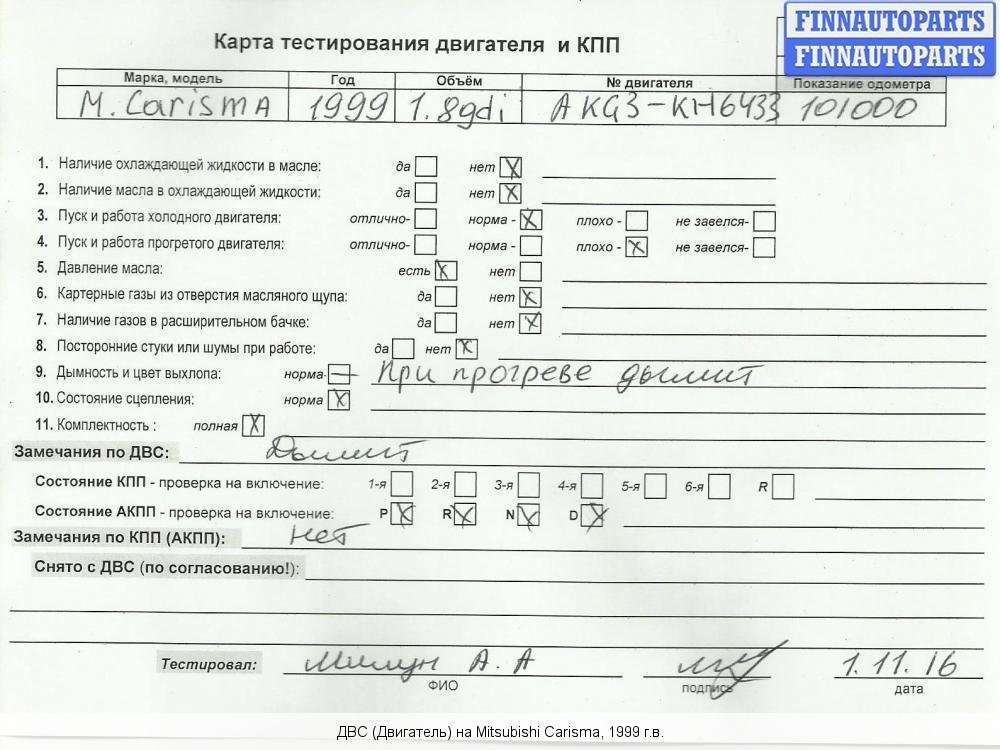 FINNAUTOPARTS
FINNAUTOPARTS
Карта тестирования двигателя и КПП
Марка, модель Год Объём № двигателя Показание одометра
M. Carisma 1999 1.8gdi AKG3-KH6433 101000
1. Наличие охлаждающей жидкости в масле: да нет X
2. Наличие масла в охлаждающей жидкости: да нет X
3. Пуск и работа холодного двигателя: отлично- норма - X плохо - не завелся-
4. Пуск и работа прогретого двигателя: отлично- норма - плохо - X не завелся-
5. Давление масла: есть X нет
6. Картерные газы из отверстия масляного щупа: да нет X
7. Наличие газов в расширительном бачке: да нет X
8. Посторонние стуки или шумы при работе: да нет X
9. Дымность и цвет выхлопа: норма- При прогреве дымит
10. Состояние сцепления: норма X
11. Комплектность : полная X
Замечания по ДВС: Дымит
Состояние КПП - проверка на включение: 1-я 2-я 3-я 4-я 5-я 6-я R
Состояние АКПП - проверка на включение: P X R X N X D X
Замечания по КПП (АКПП): Нет
Снято с ДВС (по согласованию!):
Тестировал: А. А 1.11.16
ФИО подпись дата
ДВС (Двигатель) на Mitsubishi Carisma, 1999 г.в.